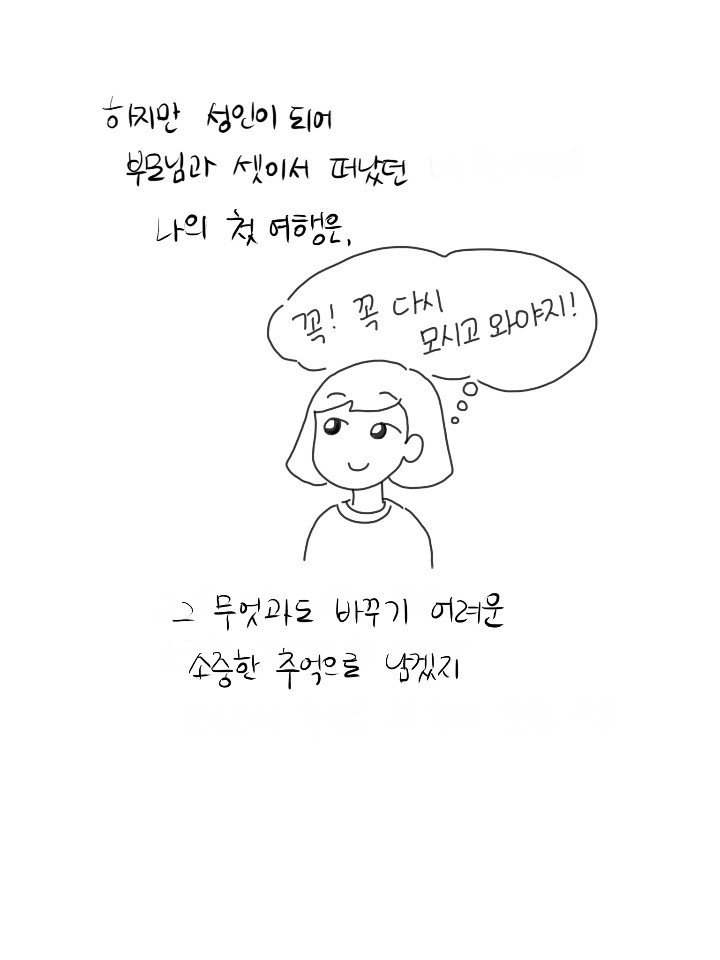 하지만 성인이 되어
부모님과 셋이서 떠났던
나의 첫 여행은,
꼭! 꼭 다시
모시고 와야지!
그 무엇과도 바꾸기 어려운
소중한 추억으로 남겠지